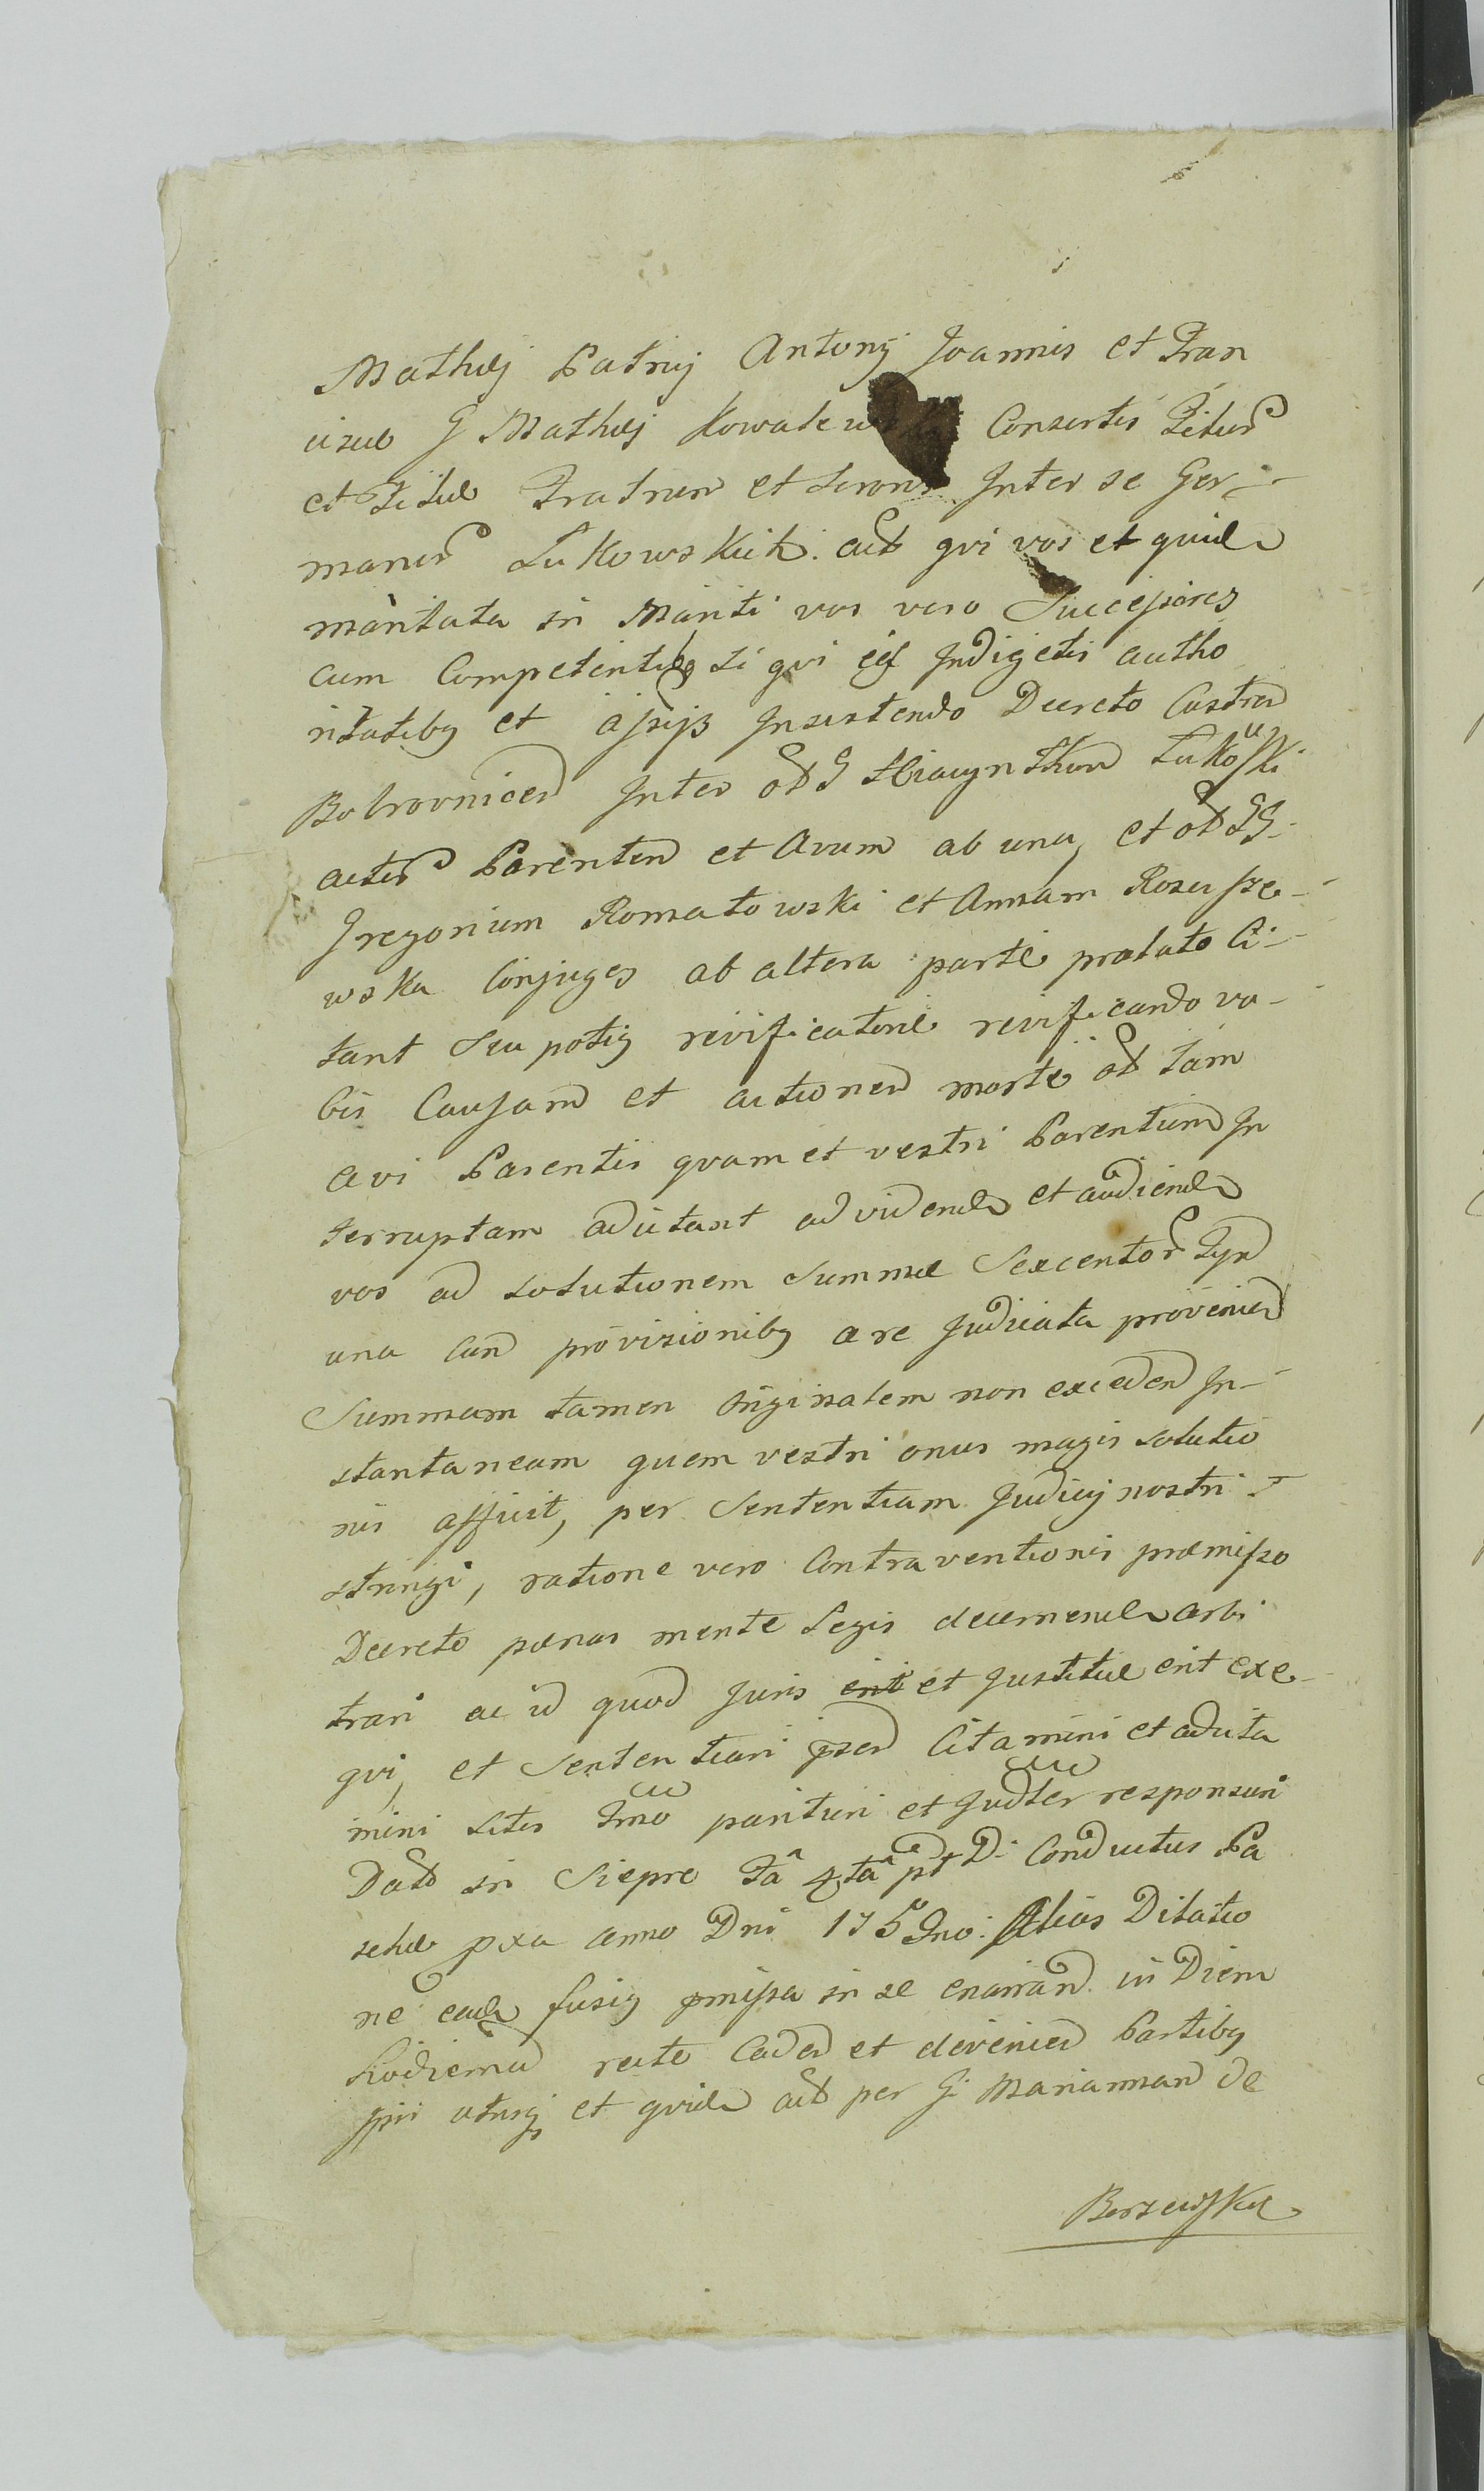 Mathej Patruj Antonij Joannis et Fran
ciscæ G Mathej Kowalewski Consortis Filior
et Filiæ Fratrum et Soror Inter se Ger-
manor Lukowskich. act qvi vos et quide
maritata in Mariti vos vero Successores
cum Competentibg si qvi eis Indigetis autho
ritatibg et assijs Insistendo Decreto Castren
Bobrovnicen Inter oD G Hiacynthum Lukowski
actor Parentem et Avum ab una, et oD GG
Gregorium Romatowski et Annam Roscisze-
wska Conjuges ab altera parte prolato Ci-
tant seu potig revificatorie revificando vo-
bis Causam et actionem morte oD tam
Avi Parentis qvam et vestri Parentum In
terruptam adcitant ad videnD et audienD
vos ad solutionem Summæ Sexcentor Tyn
una cum provisionibg a re Judicata provenien
Summam tamen Originalem non exceden In-
stantaneam quem vestri onus magis solutio
nis afficit, per Sententiam Judicij nostri
stringi, ratione vero Contraventionis præmisso
Decreto pœnas mente Legis decernenD arbi
trari ac id quod Juris erit et Justitiæ erit exe-
qvi, et Sententiari psen Citamini et adcita
mini sitis Tmo parituri et Judter responsuri
Dat in Sieprc Fa 4ta pt D. Conductus Pa
schæ pxa Anno Dni 175 Alias Dilatio
ne eade fusig pmissa in se enarran in Diem
Hodiernam recte Caden et devenien Partibg
ipsis utrisq et qvide act per G Mariannam de